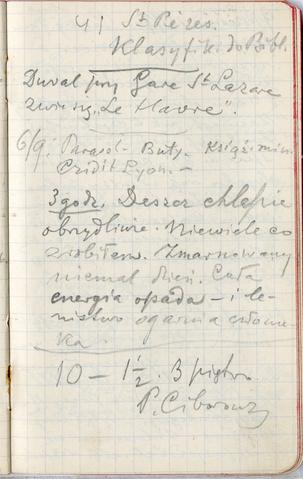 41 St Pères.
Klasyfik. do Bibl.
Duval przy Gare St Lazare
zwie się „Le Havre".
6/9. Parasol - Buty. Książ. min.
Crédit Lyon. -
3 godz. Deszcz chlapie
obrzydliwie. Niewiele co
zrobiłem. Zmarnowany
niemal dzień. Cała
energia opada - i le-
nistwo ogarnia człowie-
ka.
10 - 1½. 3 piętro
P.